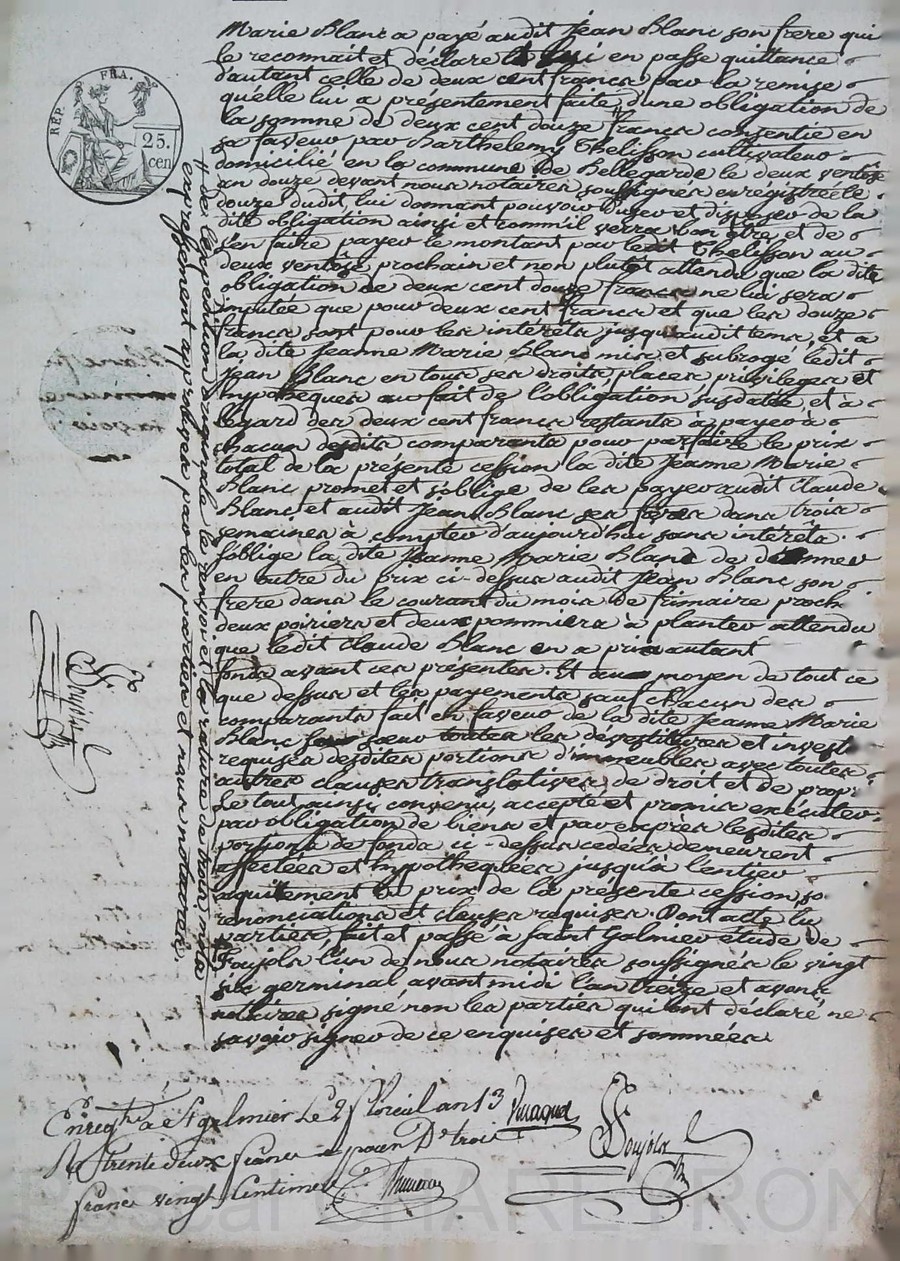 REP. FRA.
25.
cen
Marie Blanc a payé audit Jean Blanc son frere qui
le reconnait et déclare en passe quittance
d'autant celle de deux cent francs par la remise
qu'elle lui a présentement faite d'une obligation de
la somme de deux cent douze francs consentie en
sa faveur par Barthelemy Thelisson cultivateur
domicilié en la commune de Bellegarde le deux ventôse
an douze devant nous notaires soussignés enregistrée le
douze dudit, lui donnant pouvoir d'user et disposer de la
dite obligation ainsi et comm'il verra bon être, et de
s'en faire payer le montant par ledit Thelisson au
deux ventôse prochain et non plutôt attendu que la dite
obligation de deux cent douze francs ne lui sera
imputée que pour deux cent francs et que les douze
francs sont pour les intérêts jusqu'audit tems, et a
la dite Jeanne Marie Blanc mis et subrogé ledit
Jean Blanc en tous ses droits, places, privileges et
hypotheques au fait de l'obligation susdatée, et à
l'egard des deux cent francs restants à payer à
chacun desdits comparants pour parfaire le prix
total de la présente cession la dite Jeanne Marie
Blanc promet et s'oblige de les payer audit Claude
Blanc et audit Jean Blanc ses frères dans trois
semaines à compter d'aujourd'hui sans intérêts.
s'oblige la dite Jeanne Marie Blanc de donner
en outre du prix ci-dessus audit Jean Blanc son
frere dans le courant du mois de frimaire proch
deux poiriers et deux pommiers à planter attendu
que ledit Claude Blanc en a pris autant
fonds avant ces présentes. Et au moyen de tout ce
que dessus et les payements sauf chacun des
comparants fait en faveur de la dite Jeanne Marie
Blanc sœur toutes les dévestitures et investi
requises desdites portions d'immeubles avec toutes
autres clauses translatives de droit et de prop.
Le tout ainsi convenu, accepté et promis exécuter
par obligation de biens et par exprès lesdites
portions de fonds ci-dessus cédées demeurent
affectées et hypothequées jusqu'à l'entier
aquitement du prix de la présente cession, so
renonciations et clauses requises. Dont acte lu
parties, fait et passé à Saint Galmier étude de
Foujols l'un de nous notaires soussignés le vingt
six germinal avant midi l'an treize et avons
notaires signé non les parties qui ont déclaré ne
savoir signer de ce enquises et sommées
# de l'expedition originale le renvoi et la rature de trois mots
expressément approuvés par les parties et nous notaires
Enregtré à St galmier Le 2 floreal an 13
R trente deux francs pour Dt trois
francs vingt Centimes
Foujols
Pascal CHAREYRON